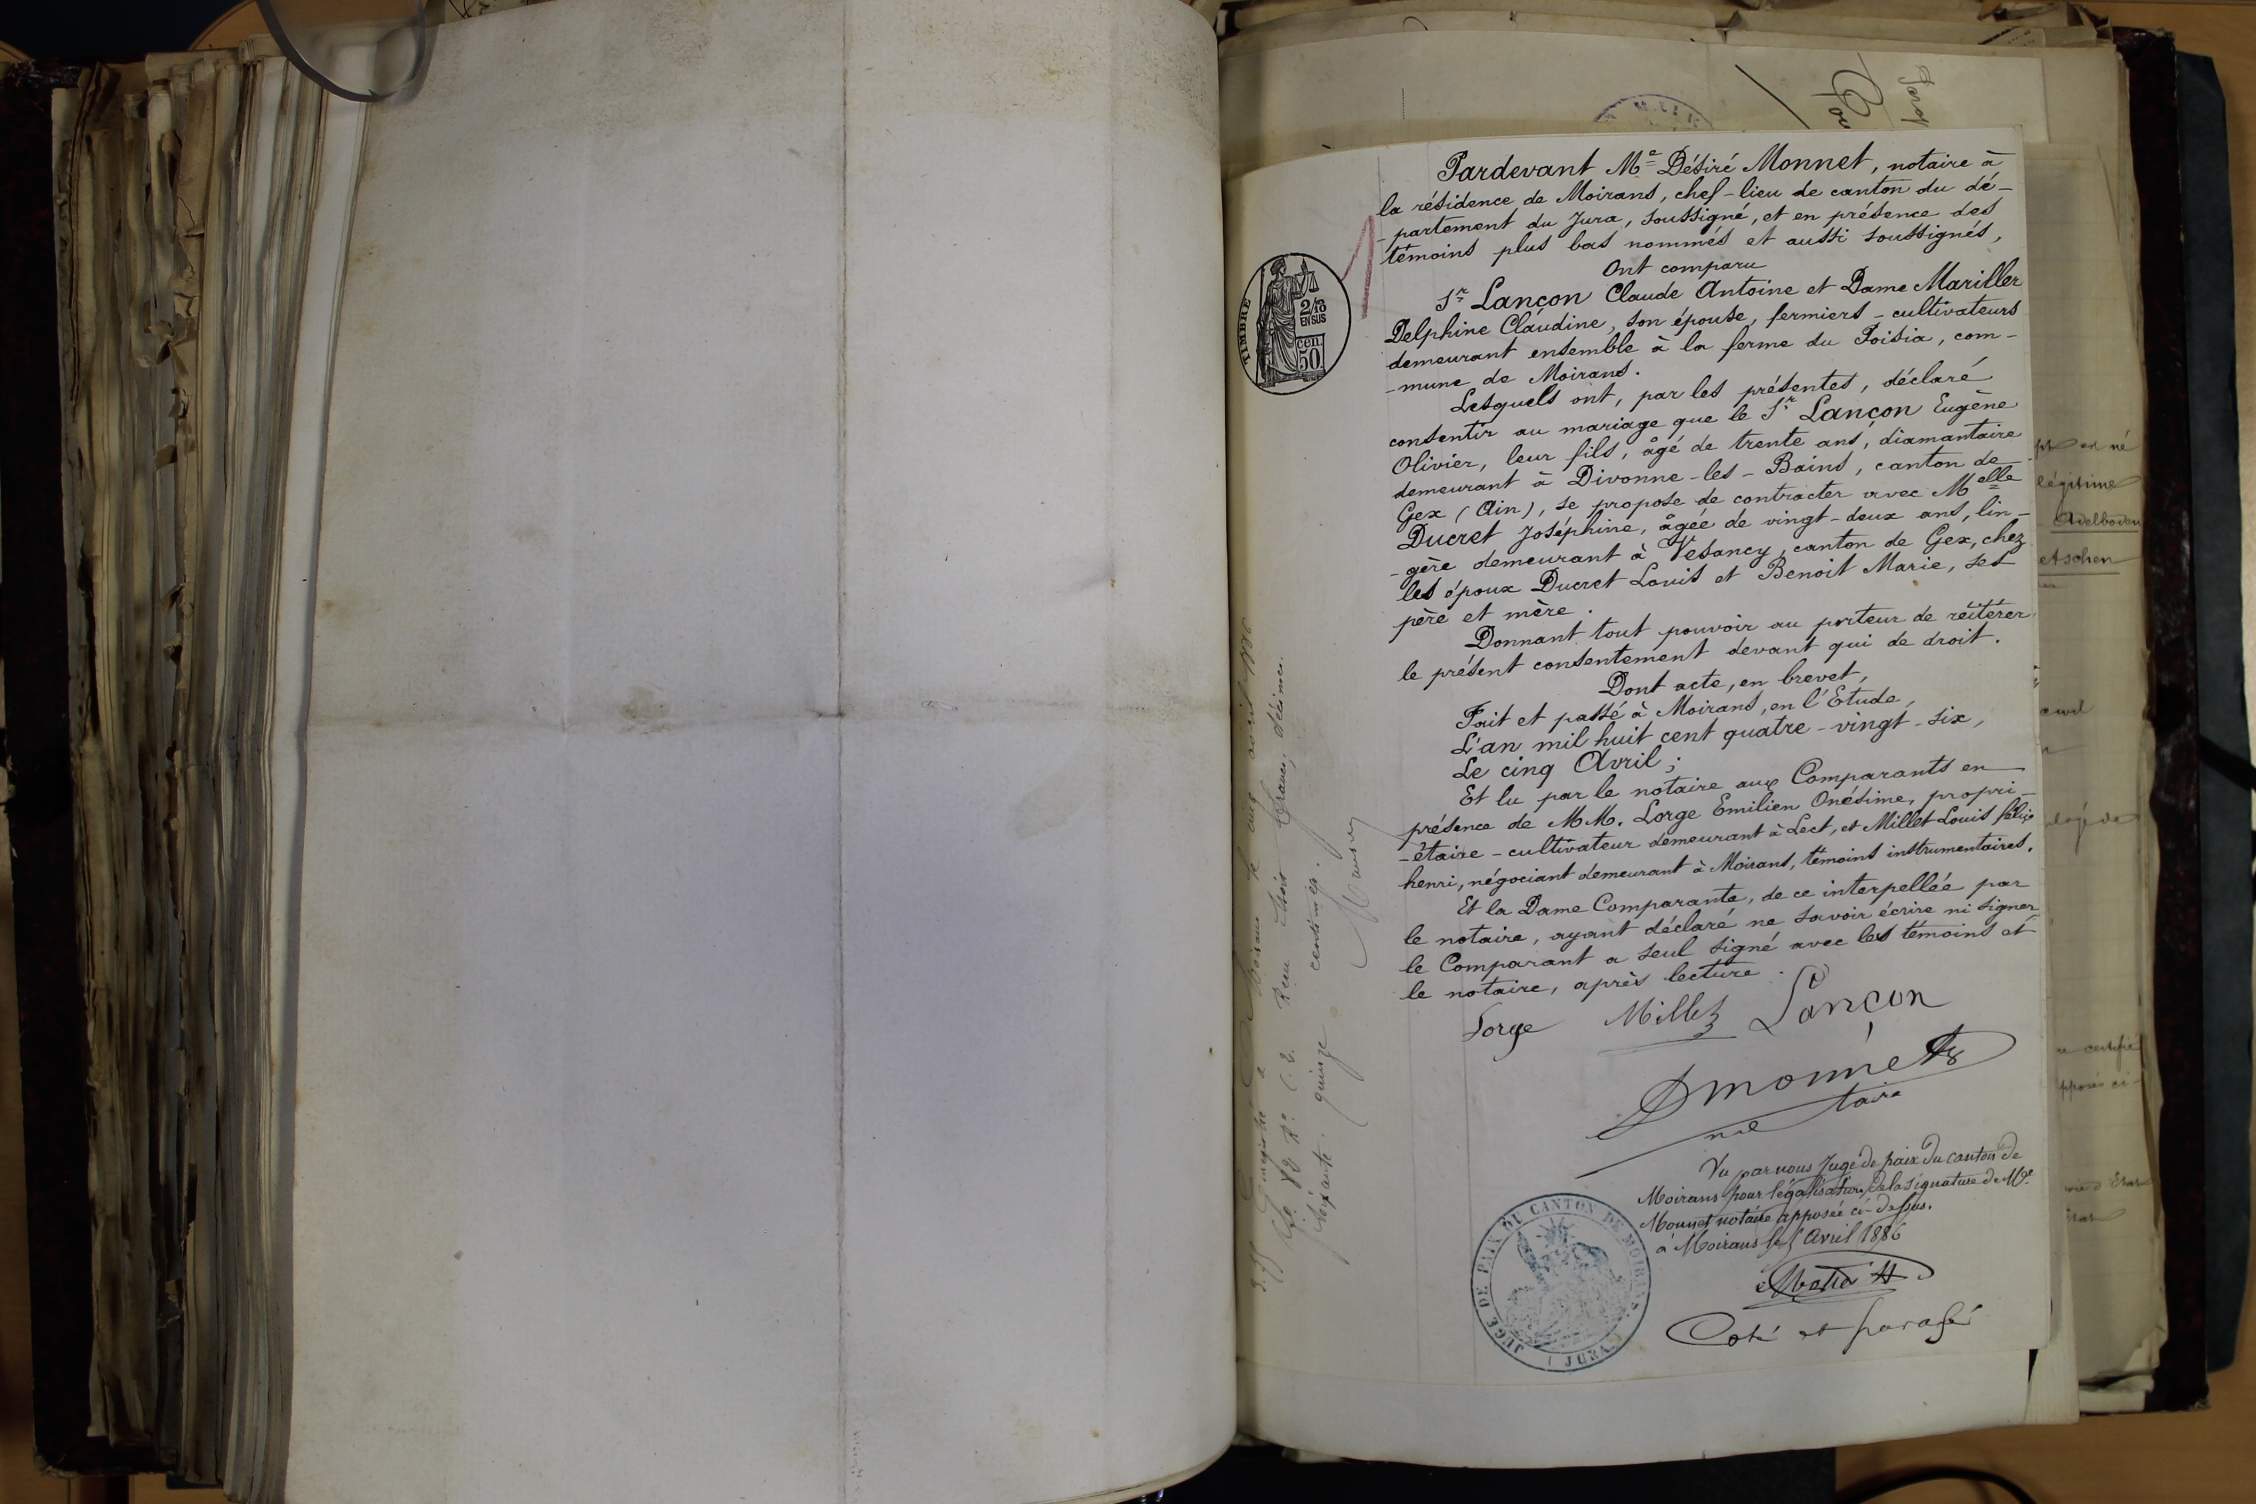 Pardevant Me Désiré Monnet, notaire à
la résidence de Moirans, chef-lieu de canton du dé-
-partement du Jura, soussigné, et en présence des
témoins plus bas nommés et aussi soussignés,
Ont comparu
Sr Lançon Claude Antoine et Dame Mariller
Delphine Claudine, son épouse, fermiers-cultivateurs
demeurant ensemble à la ferme du Poisia, com-
-mune de Moirans.
Lesquels ont, par les présentes, déclaré
consentir au mariage que le Sr Lançon Eugène
Olivier, leur fils, âgé de trente ans, diamantaire
demeurant à Divonne-les-Bains, canton de
Gex (Ain), se propose de contracter avec Melle
Ducret Joséphine, âgée de vingt-deux ans, lin-
-gère demeurant à Vesancy, canton de Gex, chez
les époux Ducret Louis et Benoit Marie, ses
père et mère.
Donnant tout pouvoir au porteur de réitérer
le présent consentement devant qui de droit.
Dont acte, en brevet,
Fait et passé à Moirans, en l'Etude,
L'an mil huit cent quatre-vingt-six,
Le cinq Avril;
Et lu par le notaire aux Comparants en
présence de MM. Lorge Emilien Onésime, propri-
-étaire-cultivateur demeurant à Lect, et Millet Louis félix
henri, négociant demeurant à Moirans, témoins instrumentaires.
Et la Dame Comparante, de ce interpellée par
le notaire, ayant déclaré ne savoir écrire ni signer
le Comparant a seul signé avec les témoins et
le notaire, après lecture.
Lorge Millet Lançon
DMonnet
notaire
Vu par nous Juge de paix du canton de
Moirans pour légalisation de la signature de Me
Monnet notaire apposée ci-dessus.
à Moirans le 5 Avril 1886
Coté et parafé
JUGE DE PAIX DU CANTON DE MOIRANS
(JURA)
TIMBRE
2/10
EN SUS
cen.
50
Enregistré à Moirans le cinq avril 1886
Reçu trois francs, décimes
soixante quinze centimes.
légitime
Adelboden